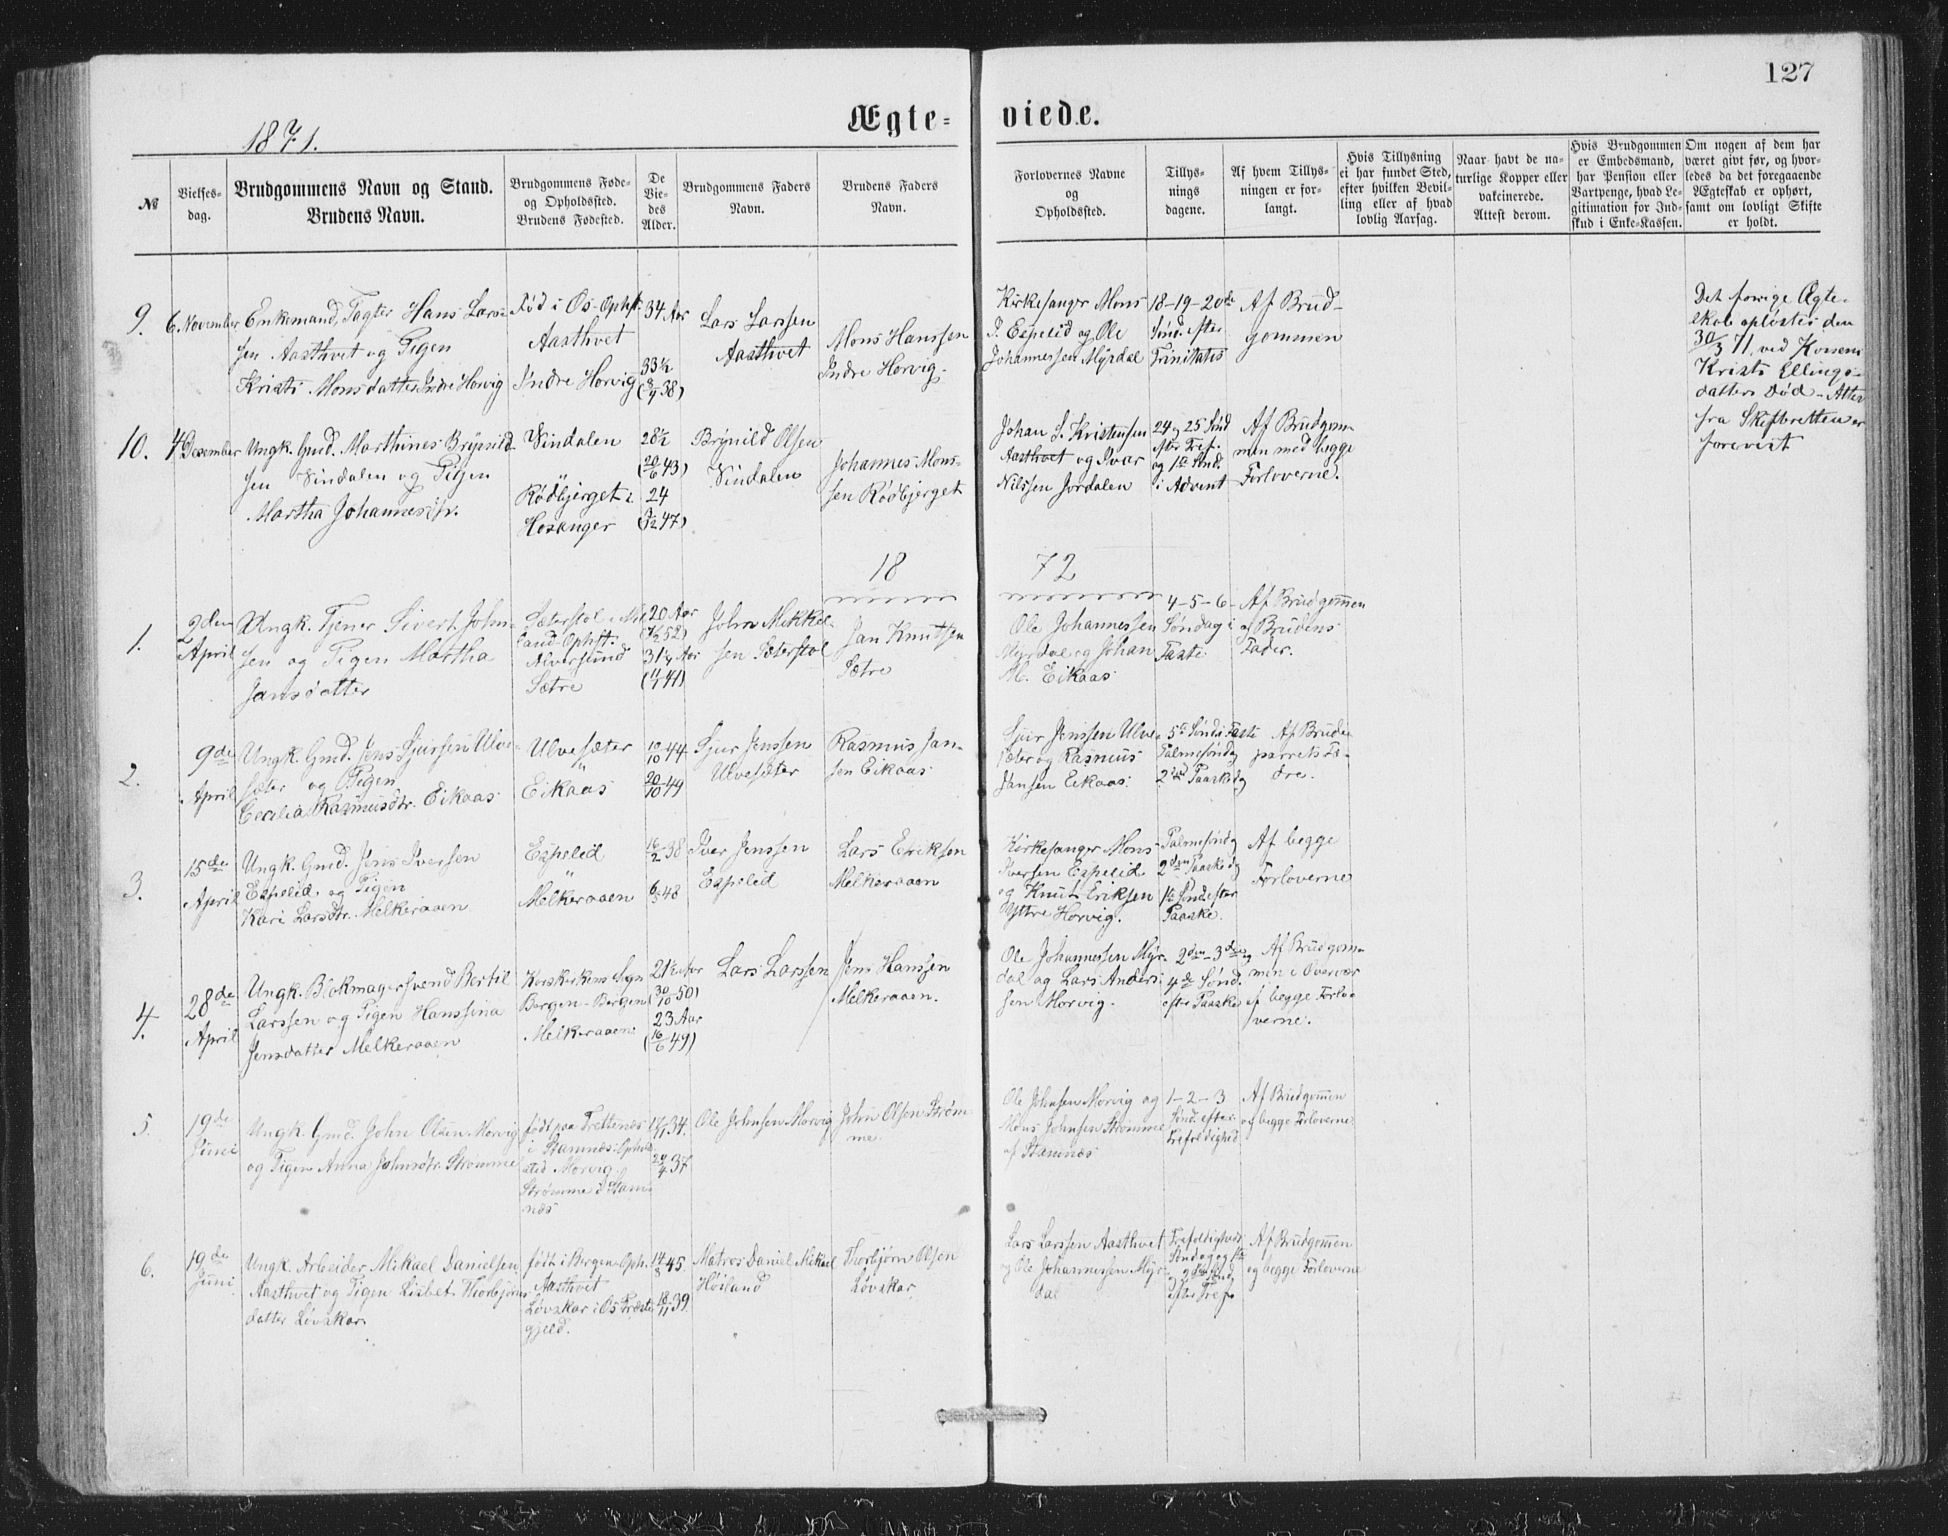 127
Ægte- viede.
1871.
№
Vielses-
dag.
Brudgommens Navn og Stand.
Brudens Navn.
Brudgommens Føde-
og Opholdssted.
Brudens Fødested.
De
Vie-
des
Alder.
Brudgommens Faders
Navn.
Brudens Faders
Navn.
Forlovernes Navne
og
Opholdssted.
Tillys-
nings
dagene.
Af hvem Tillys-
ningen er for-
langt.
Hvis Tillysning
ei har fundet Sted,
efter hvilken Bevil-
ling eller af hvad
lovlig Aarsag.
Naar havt de na-
turlige Kopper eller
vakcinerede.
Attest derom.
Hvis Brudgommen
er Embedsmand,
har Pension eller
Vartpenge, hvad Le-
gitimation for Ind-
skud i Enke-Kassen.
Om nogen af dem har
været givt før, og hvor-
ledes da det foregaaende
Ægteskab er ophørt,
samt om lovligt Skifte
er holdt.
9.
6 November
Enkemand, Hans Lars-
sen Aasthvet og Pigen
Kristi Monsdatter Indre Horvig
Fød i Os-Ophst.
Aasthvet
Indre Horvig
34 Aar
33½
(8/4 38)
Lars Larssen
Aasthvet
Mons Hanssen
Indre Horvig.
Kirkesanger Mons
I. Espelid og Ole
Johannessen Myrdal
18-19-20de
Sønd. efter
Trinitatis
Af Brud-
gommen
Det forrige Ægte-
skab opløstes den
30/3 71, ved Konens
Kristi Ellings-
datters Død - Attest
fra Skifteretten er
forevist
10.
4 Desember
Ungk. Gmd. Marthines Brynild-
sen Sindalen og Pigen
Martha Johannesdtr.
Sindalen
Rødbjerget i
Hosanger
28½
(20/6 43)
24
(5/12 47)
Brynild Olsen
Sindalen
Johannes Mons-
sen Rødbjerget
Johan S. Kristensen
Aasthvet og Ivar
Nilssen Jordalen
24 og 25 Sønd
efter Tref.
og 1ste Sønd.
i Advent
Af Brudgom-
men med begge
Forloverne.
18 72
1.
2den
April
Ungk. Tjener Sivert John-
sen og Pigen Martha
Jansdatter
Sæterstøl i
land Ophst.
Alversund
Sætre
20 Aar
31¼ Aar
(11/1 41)
John Mikkel-
sen Sæterstøl
Jan Knutsen
Sætre
Ole Johannessen
Myrdal og Johan
M. Eikaas
4-5-6
Søndag i
Faste
Af Brudgommen
og Brudens
Fader.
2.
9de
April
Ungk. Gmd. Jens Sjursen Ulve-
sæter og Pigen
Cecilia Rasmusdtr. Eikaas
Ulvesæter
Eikaas
10/10 44
20/10 49
Sjur Jenssen
Ulvesæter
Rasmus Jan-
sen Eikaas
Sjur Jenssen Ulve-
sæter og Rasmus
Jansen Eikaas.
5te Sønd i Faste
Palmesøndag
2den Paaskedag
Af Brude-
parrets Fæ-
dre.
3.
15de
April
Ungk. Gmd. Jens Iversen
Espelid, og Pigen
Kari Larsdtr. Melkeraaen
Espelid
Melkeraaen
16/2 38
6/5 48
Iver Jenssen
Espelid
Lars Eriksen
Melkeraaen
Kirkesanger Mons
Iversen Espelid
og Knut Eriksen
Yttre Horvig.
Palmesøndag
2den Paaskedag
1ste Sønd efter
Paaske.
Af begge
Forloverne
4.
28de
April
Ungk. Blokmagersvend Bertil
Larssen og Pigen Hanssina
Jensdatter Melkeraaen
Korskirkens Sogn
Bergen - Bergen
Melkeraaen
21½ Aar
(30/10 50)
23 Aar
(16/6 49)
Lars Larssen
Jens Hanssen
Melkeraaen.
Ole Johannessen Myr-
dal og Lars Anders-
sen Morvig.
2den - 3die og
4de Sønd.
efter Paaske
Af Brudgom-
men i Overvær
af begge Forlo-
verne.
5.
19de
Juni
Ungk. Gmd. John Olsen Morvig
og Pigen Anna Johnsdtr. Strømme
født paa Trettenes
i Stamnes. Opholds-
sted Morvig.
Strømme i Stam-
nes
34.
24/4 37
Ole Johnsen Morvig
John Olsen Strøm-
me.
Ole Johnsen Morvig og
Mons Johnsen Strømme
af Stamnes
1-2-3
Sønd efter
Trefoldighed
Af Brudgommen
og begge Forloverne
6.
19de
Juni
Ungk. Arbeider Mikael Danielsen
Aasthvet og Pigen Lisbet Thorbjørns-
datter Løvskar.
født i Bergen Oph.
Aasthvet
Løvskar i Os Præste-
gjeld.
14/8 45.
18/11 39.
Matros Daniel Mikael
Høiland
Thorbjørn Olsen
Løvskar
Lars Larssen Aasthvet
og Ole Johannessen Myr-
dal
Trefoldigheds
Søndag og 1ste
og 2den Sønd
efter Tref.
Af Brudgommen
og begge Forloverne